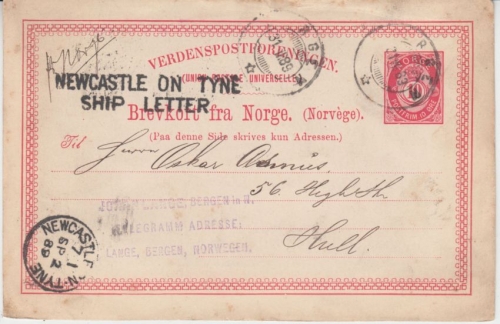 VERDENSPOSTFORENINGEN.
(UNION POSTALE UNIVERSELLE)
NEWCASTLE ON TYNE
SHIP LETTER
NORGE
10
Brevkort fra Norge. (Norvège).
(Paa denne Side skrives kun Adressen.)
Til
Herrn Oskar Asmus
56. High Str.
Hull.
LANGE BERGEN in N.
TELEGRAMM ADRESSE:
LANGE, BERGEN, NORWEGEN.
NEWCASTLE-ON-TYNE
7 I
SP 2
89